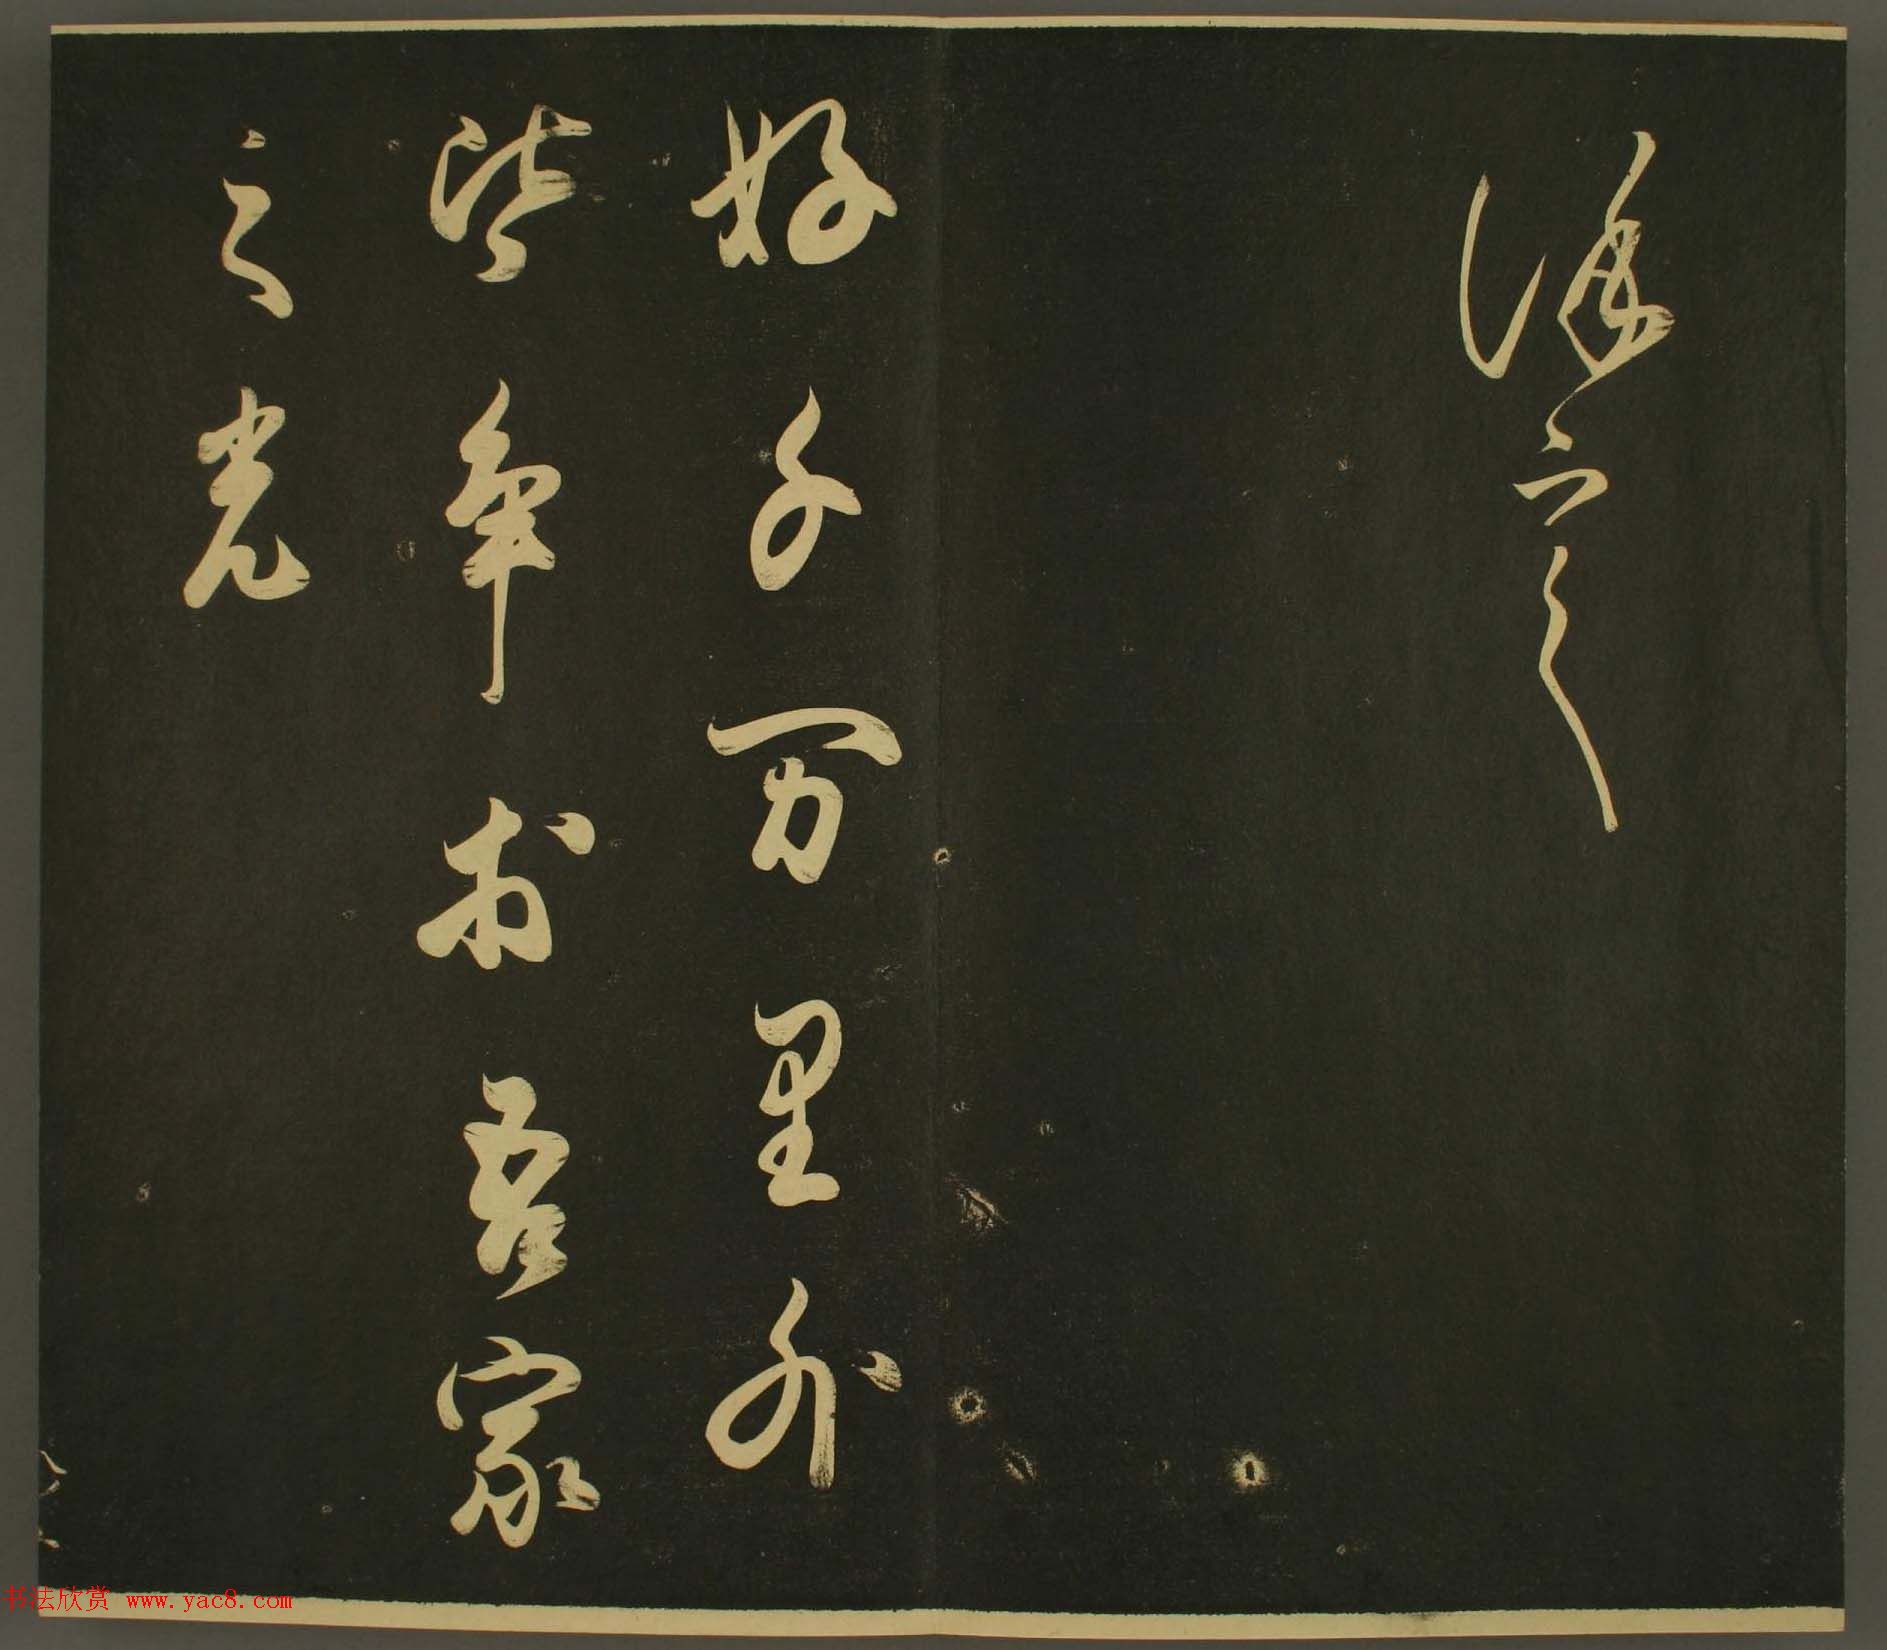 之
好子万里外
皆争吾家
之光
书法欣赏 www.yac8.com